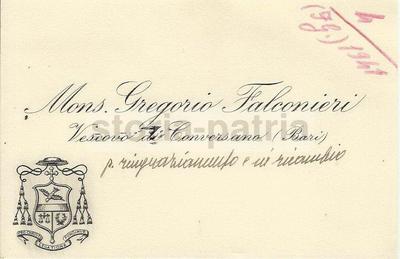 4
(Fg.) 1941
Mons. Gregorio Falconieri
Vescovo di Conversano (Bari)
storia-patria
p. ringraziamento e in ricambio